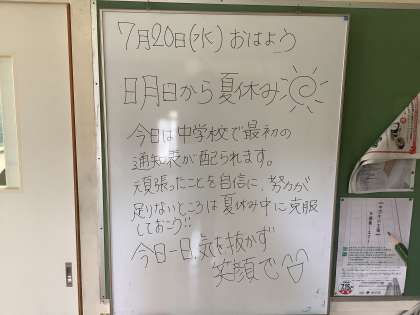 7月20日(水) おはよう
明日から夏休み
今日は中学校で最初の
通知表が配られます。
頑張ったことを自信に、努力が
足りないところは夏休み中に克服
しておこう!!
今日一日、気を抜かず
笑顔で